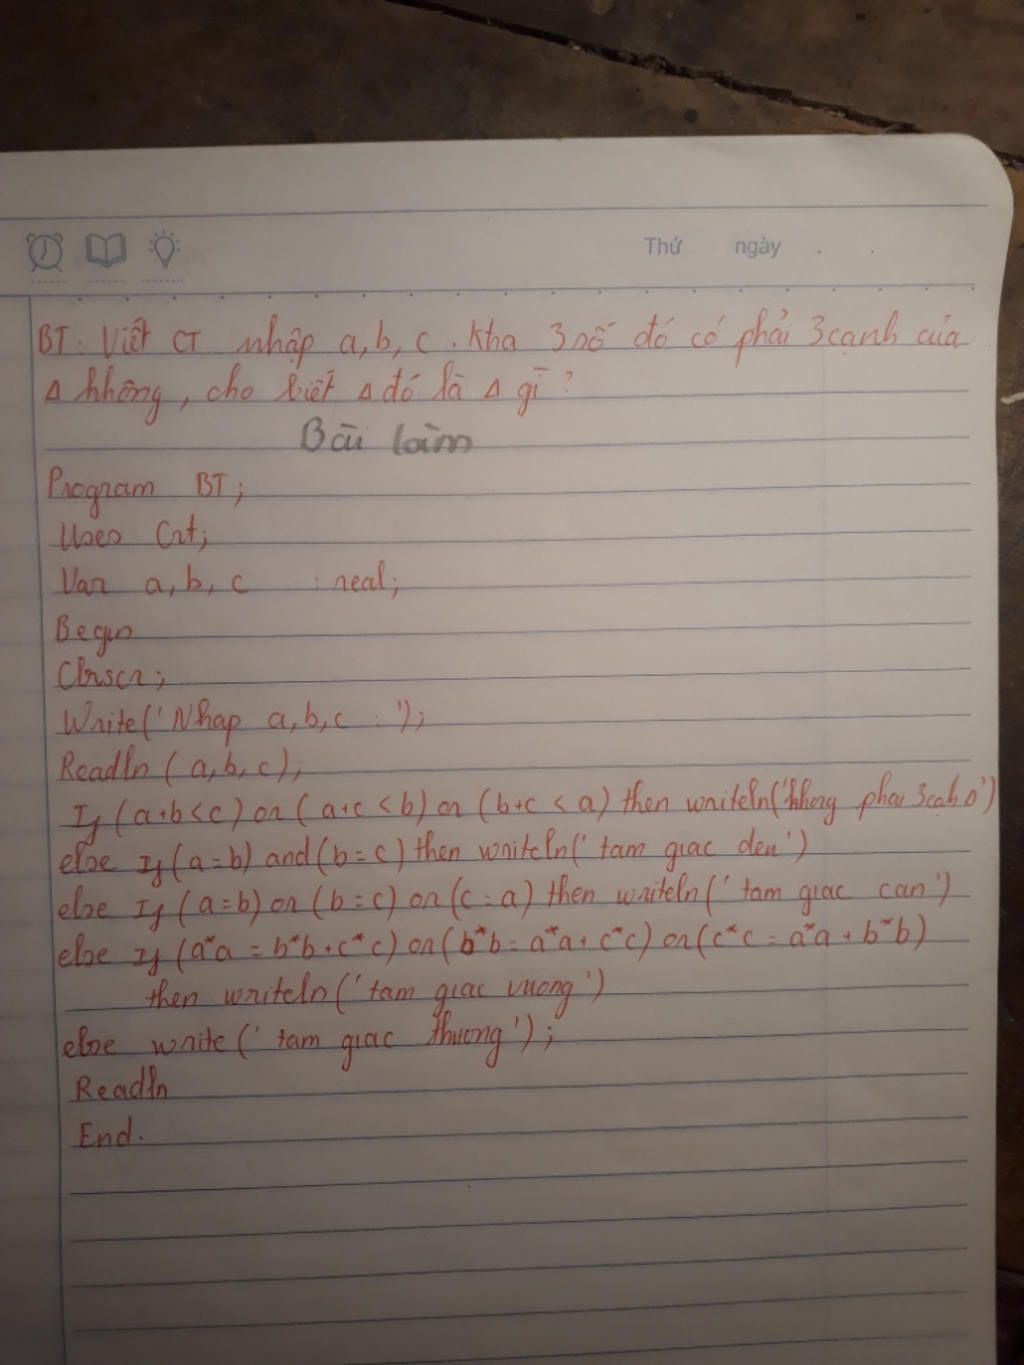 Thứ ngày . .
BT: Viết CT nhập a,b,c. Kha 3 số đó có phải 3 cạnh của
Δ không, cho biết Δ đó là Δ gì?
Bài làm
Program BT;
Uses Crt;
Var a,b,c : real;
Begin
Clrscr;
Write('Nhap a,b,c : ');
Readln(a,b,c);
If (a+b<c) or (a+c<b) or (b+c<a) then writeln('khong phai 3 cah Δ')
else If (a=b) and (b=c) then writeln('tam giac deu')
else If (a=b) or (b=c) or (c=a) then writeln('tam giac can')
else If (a*a=b*b+c*c) or (b*b=a*a+c*c) or (c*c=a*a+b*b)
then writeln('tam giac vuong')
else write('tam giac thuong');
Readln
End.